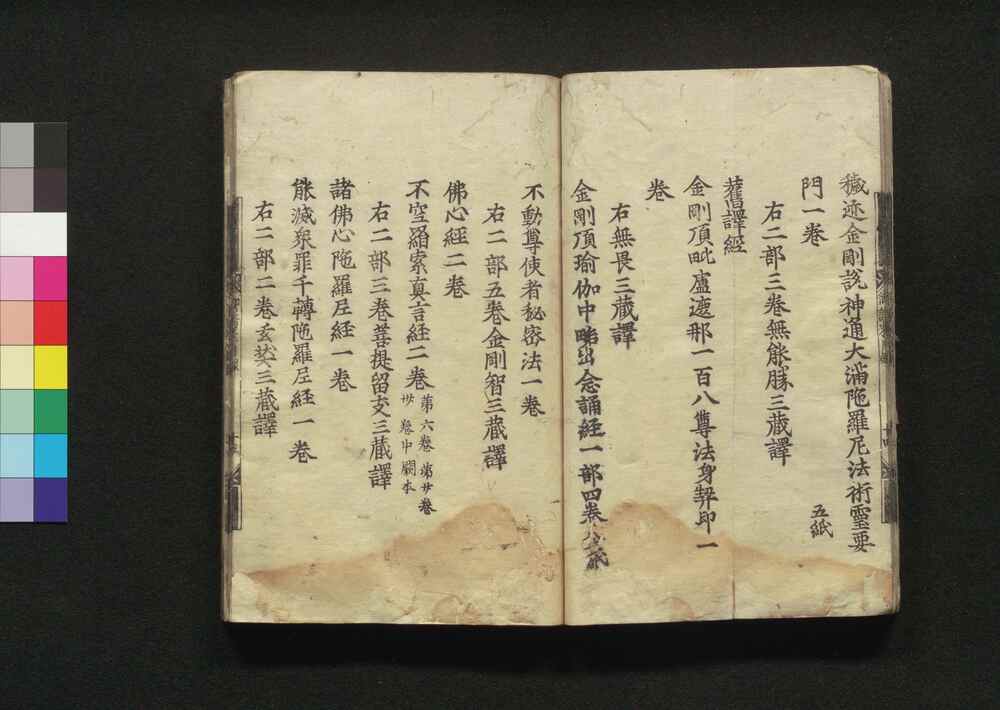 穢迹金剛説神通大滿陁羅尼法術靈要
門一卷 五紙
右二部三卷無能勝三藏譯
舊譯經
金剛頂毗盧遮那一百八尊法身契印一
卷
右無畏三藏譯
金剛頂瑜伽中略出念誦經一部四卷
不動尊使者秘密法一卷
右二部五卷金剛智三藏譯
佛心經二卷
不空羂索真言經二卷 第六卷 第廿卷
卷中闕本
右二部三卷菩提留支三藏譯
諸佛心陁羅尼經一卷
能滅衆罪千轉陁羅尼經一卷
右二部二卷玄奘三藏譯